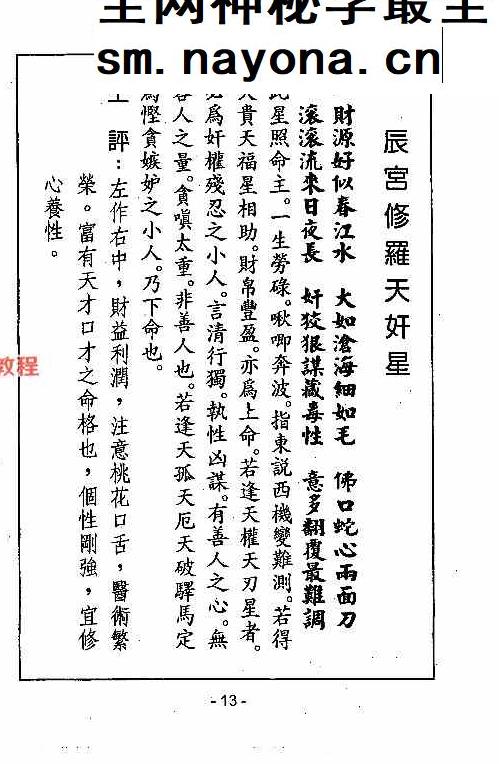 全网神秘学最全
sm.nayona.cn
辰宮修羅天奸星
財源好似春江水　大如滄海細如毛　佛口蛇心兩面刀
滾滾流來日夜長　奸狡狠謀藏毒性　意多翻覆最難調
此星照命主。一生勞碌。啾唧奔波。指東説西機變難測。若得
貴天福星相助。財帛豐盈。亦爲上命。若逢天權天刃星者。
爲奸權殘忍之小人。言清行獨。執性凶謀。有善人之心。無
容人之量。貪嗔太重。非善人也。若逢天孤天厄天破驛馬定
爲慳貪嫉妒之小人。乃下命也。
評：左作右中，財益利潤，注意桃花口舌，醫術繁
榮。富有天才口才之命格也，個性剛強，宜修
心養性。
教程
-13-